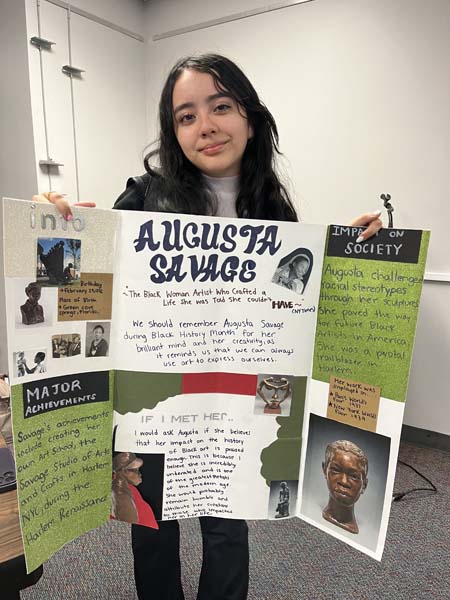 info
Birthday
February 29, 1892
Place of Birth
Green Cove
Springs, Florida.
MAJOR
ACHIEVEMENTS
Savage's achievements
include creating her
own Art School, the
Savage Studio of Arts
and Crafts in Harlem
NYC, during the
Harlem Renaissance
AUGUSTA
SAVAGE
"The Black Woman Artist Who Crafted a
Life She Was Told She Couldn't
HAVE"
(NY TIMES)
We should remember Augusta Savage
during Black History Month for her
brilliant mind and her creativity, as
it reminds us that we can always
use art to express ourselves.
IF I MET HER..
I would ask Augusta if she believes
that her impact on the history
of Black art is passed
enough. This is because I
believe she is incredibly
underrated and is one
of the greatest artists
of the modern age.
She would probably
remain humble and
attribute her creation
to those who impacted
her in her life.
IMPACT ON
SOCIETY
Augusta challenged
racial stereotypes
through her sculptures.
She paved the way
for future Black
Artists in America.
She was a pivotal
trailblazer in
Harlem
Her work was
displayed in
Paris World's
Fair 1931
New York World
Fair 1939